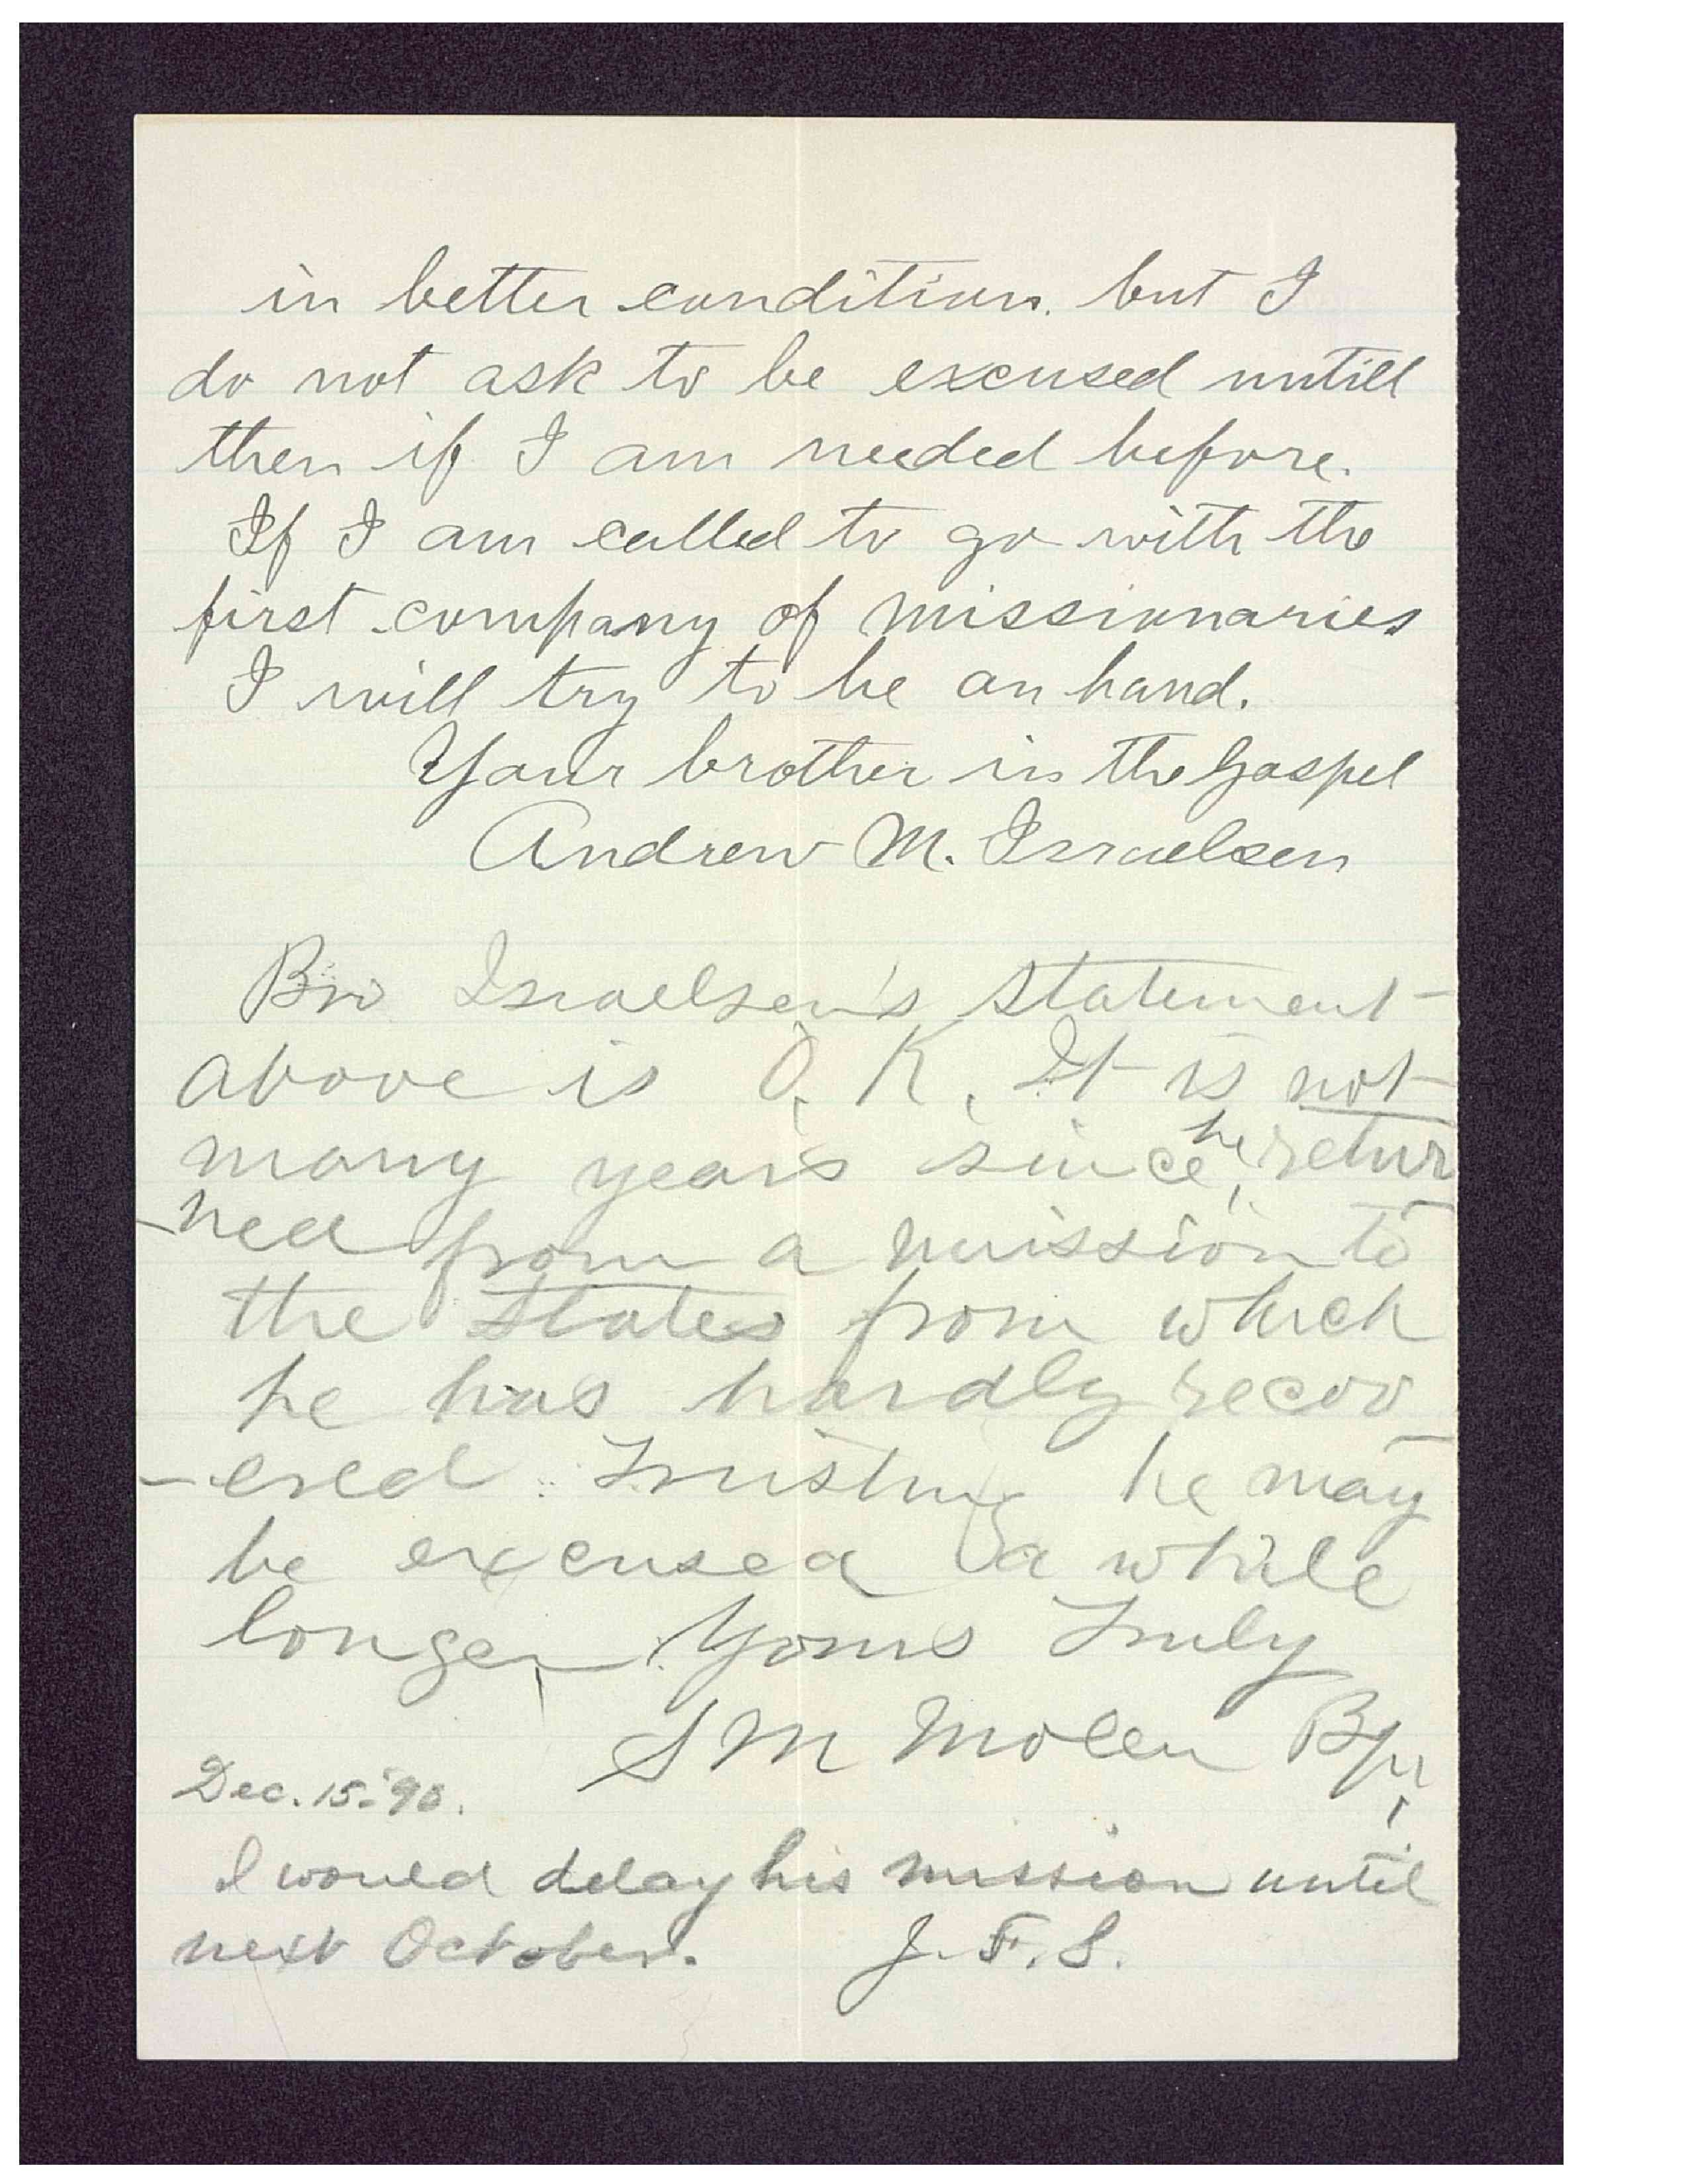 in better condition. but I
do not ask to be excused untill
then if I am needed before.
If I am called to go with the
first company of missionaries
I will try to be on hand.
Your brother in the Gospel
Andrew M. Israelsen
Bro Israelsen's statement
above is O. K. It is not
many years since he retur
-ned from a mission to
the States from which
he has hardly recov
-ered Trusting he may
be excused a while
longer Yours Truly
S M Molen Bp.
Dec. 15-'90.
I would delay his mission until
next October. J. F. S.